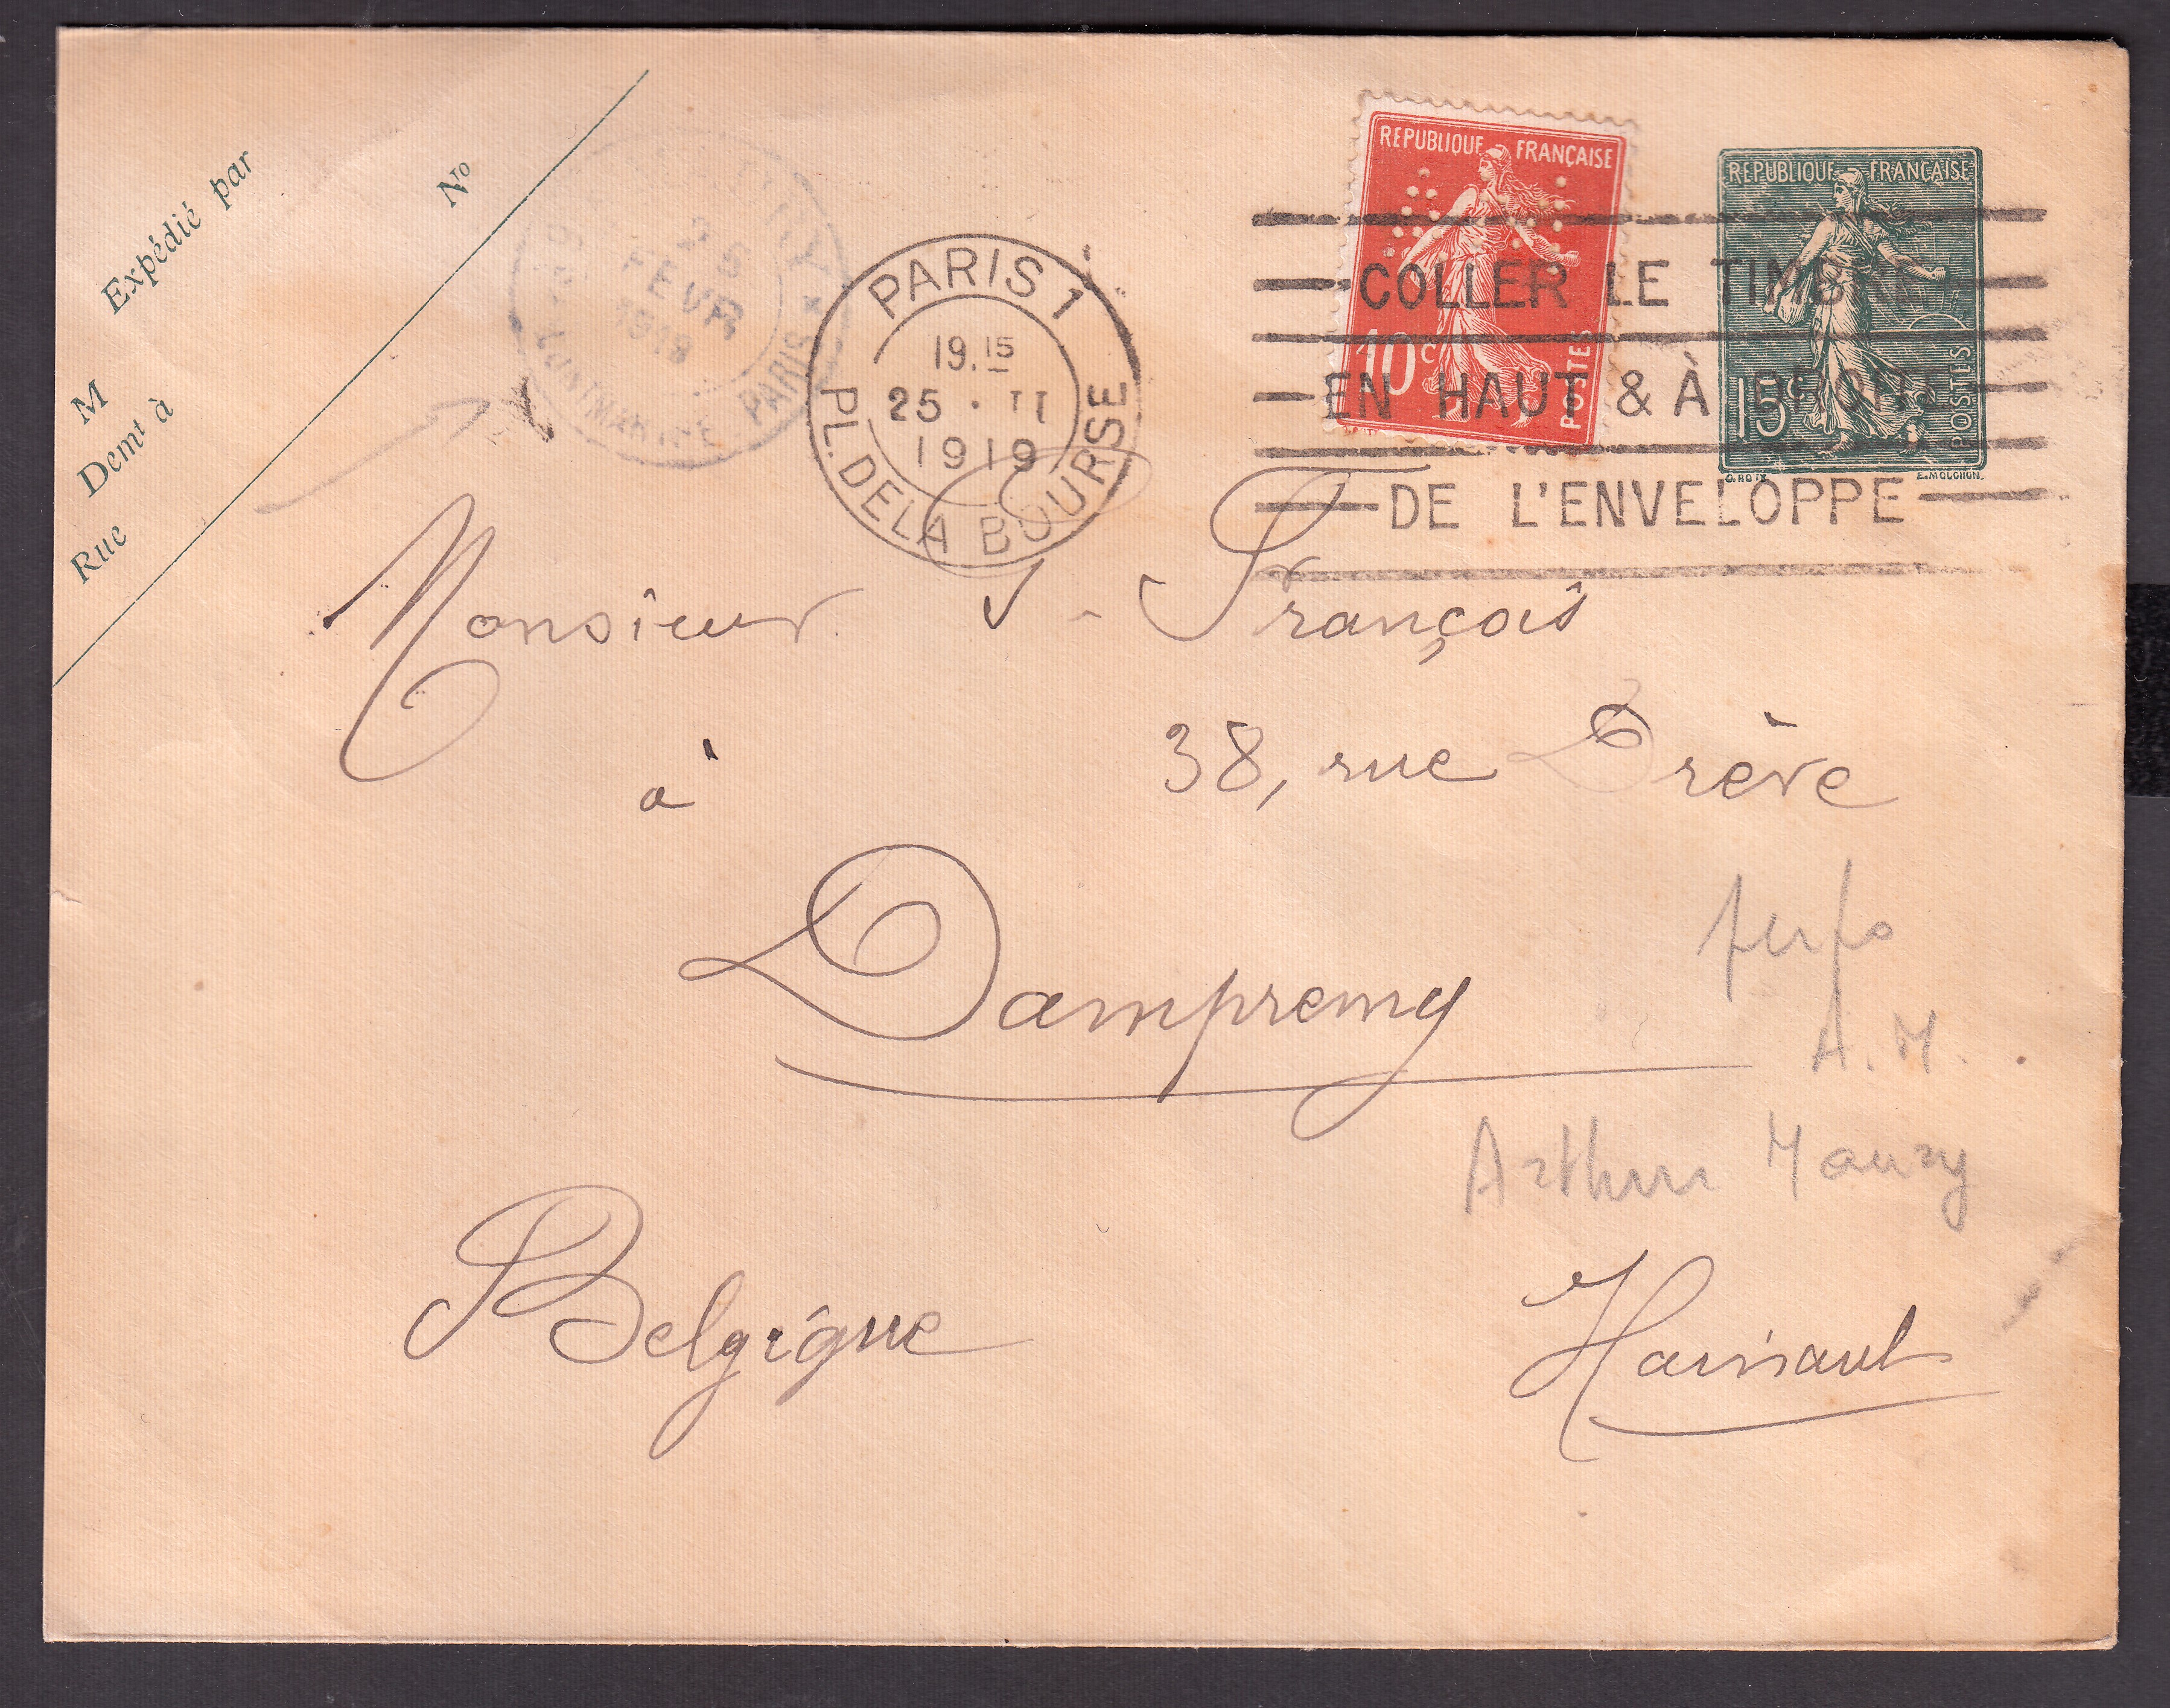 Expédié par
M
Nº
Demt à
Rue
25
FEVR
1919
MONTMARTRE PARIS
PARIS 1
19.15
25 · II
1919
PL. DE LA BOURSE
REPUBLIQUE FRANÇAISE
10c
POSTES
REPUBLIQUE FRANÇAISE
15c
POSTES
O.ROTY E.MOUCHON
COLLER LE TIMBRE
EN HAUT & À DROITE
DE L'ENVELOPPE
Monsieur J - François
à 38, rue Drève
Dampremy
perfo
A.M.
Arthur Maury
Belgique Hainaut